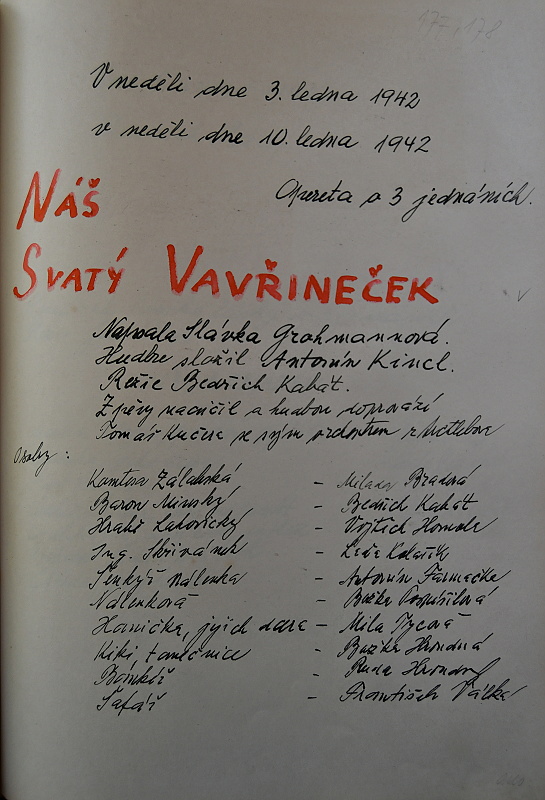 177, 178
V neděli dne 3. ledna 1942
v neděli dne 10. ledna 1942
Opereta o 3 jednáních.
Náš
Svatý Vavřineček
Napsala Slávka Grohmannová.
Hudbu složil Antonín Kincl.
Režie Bedřich Kabát.
Zpěvy nacvičil a hudbou doprovází
Tomáš Kučera se svým orchestrem z
Osoby:
Komtesa Zálabská – Milada Bradná
Baron Minský – Bedřich Kabát
Hrabě Lakovický – Vojtěch
Ing. Skřivánek –
Šenkýř Nálenka – Antonín
Nálenková – Božka Pospíšilová
Hanička, jejich dcera – Míla
Kiki, tanečnice – Božka
Bankéř – Ruda
Šafář – František Válka